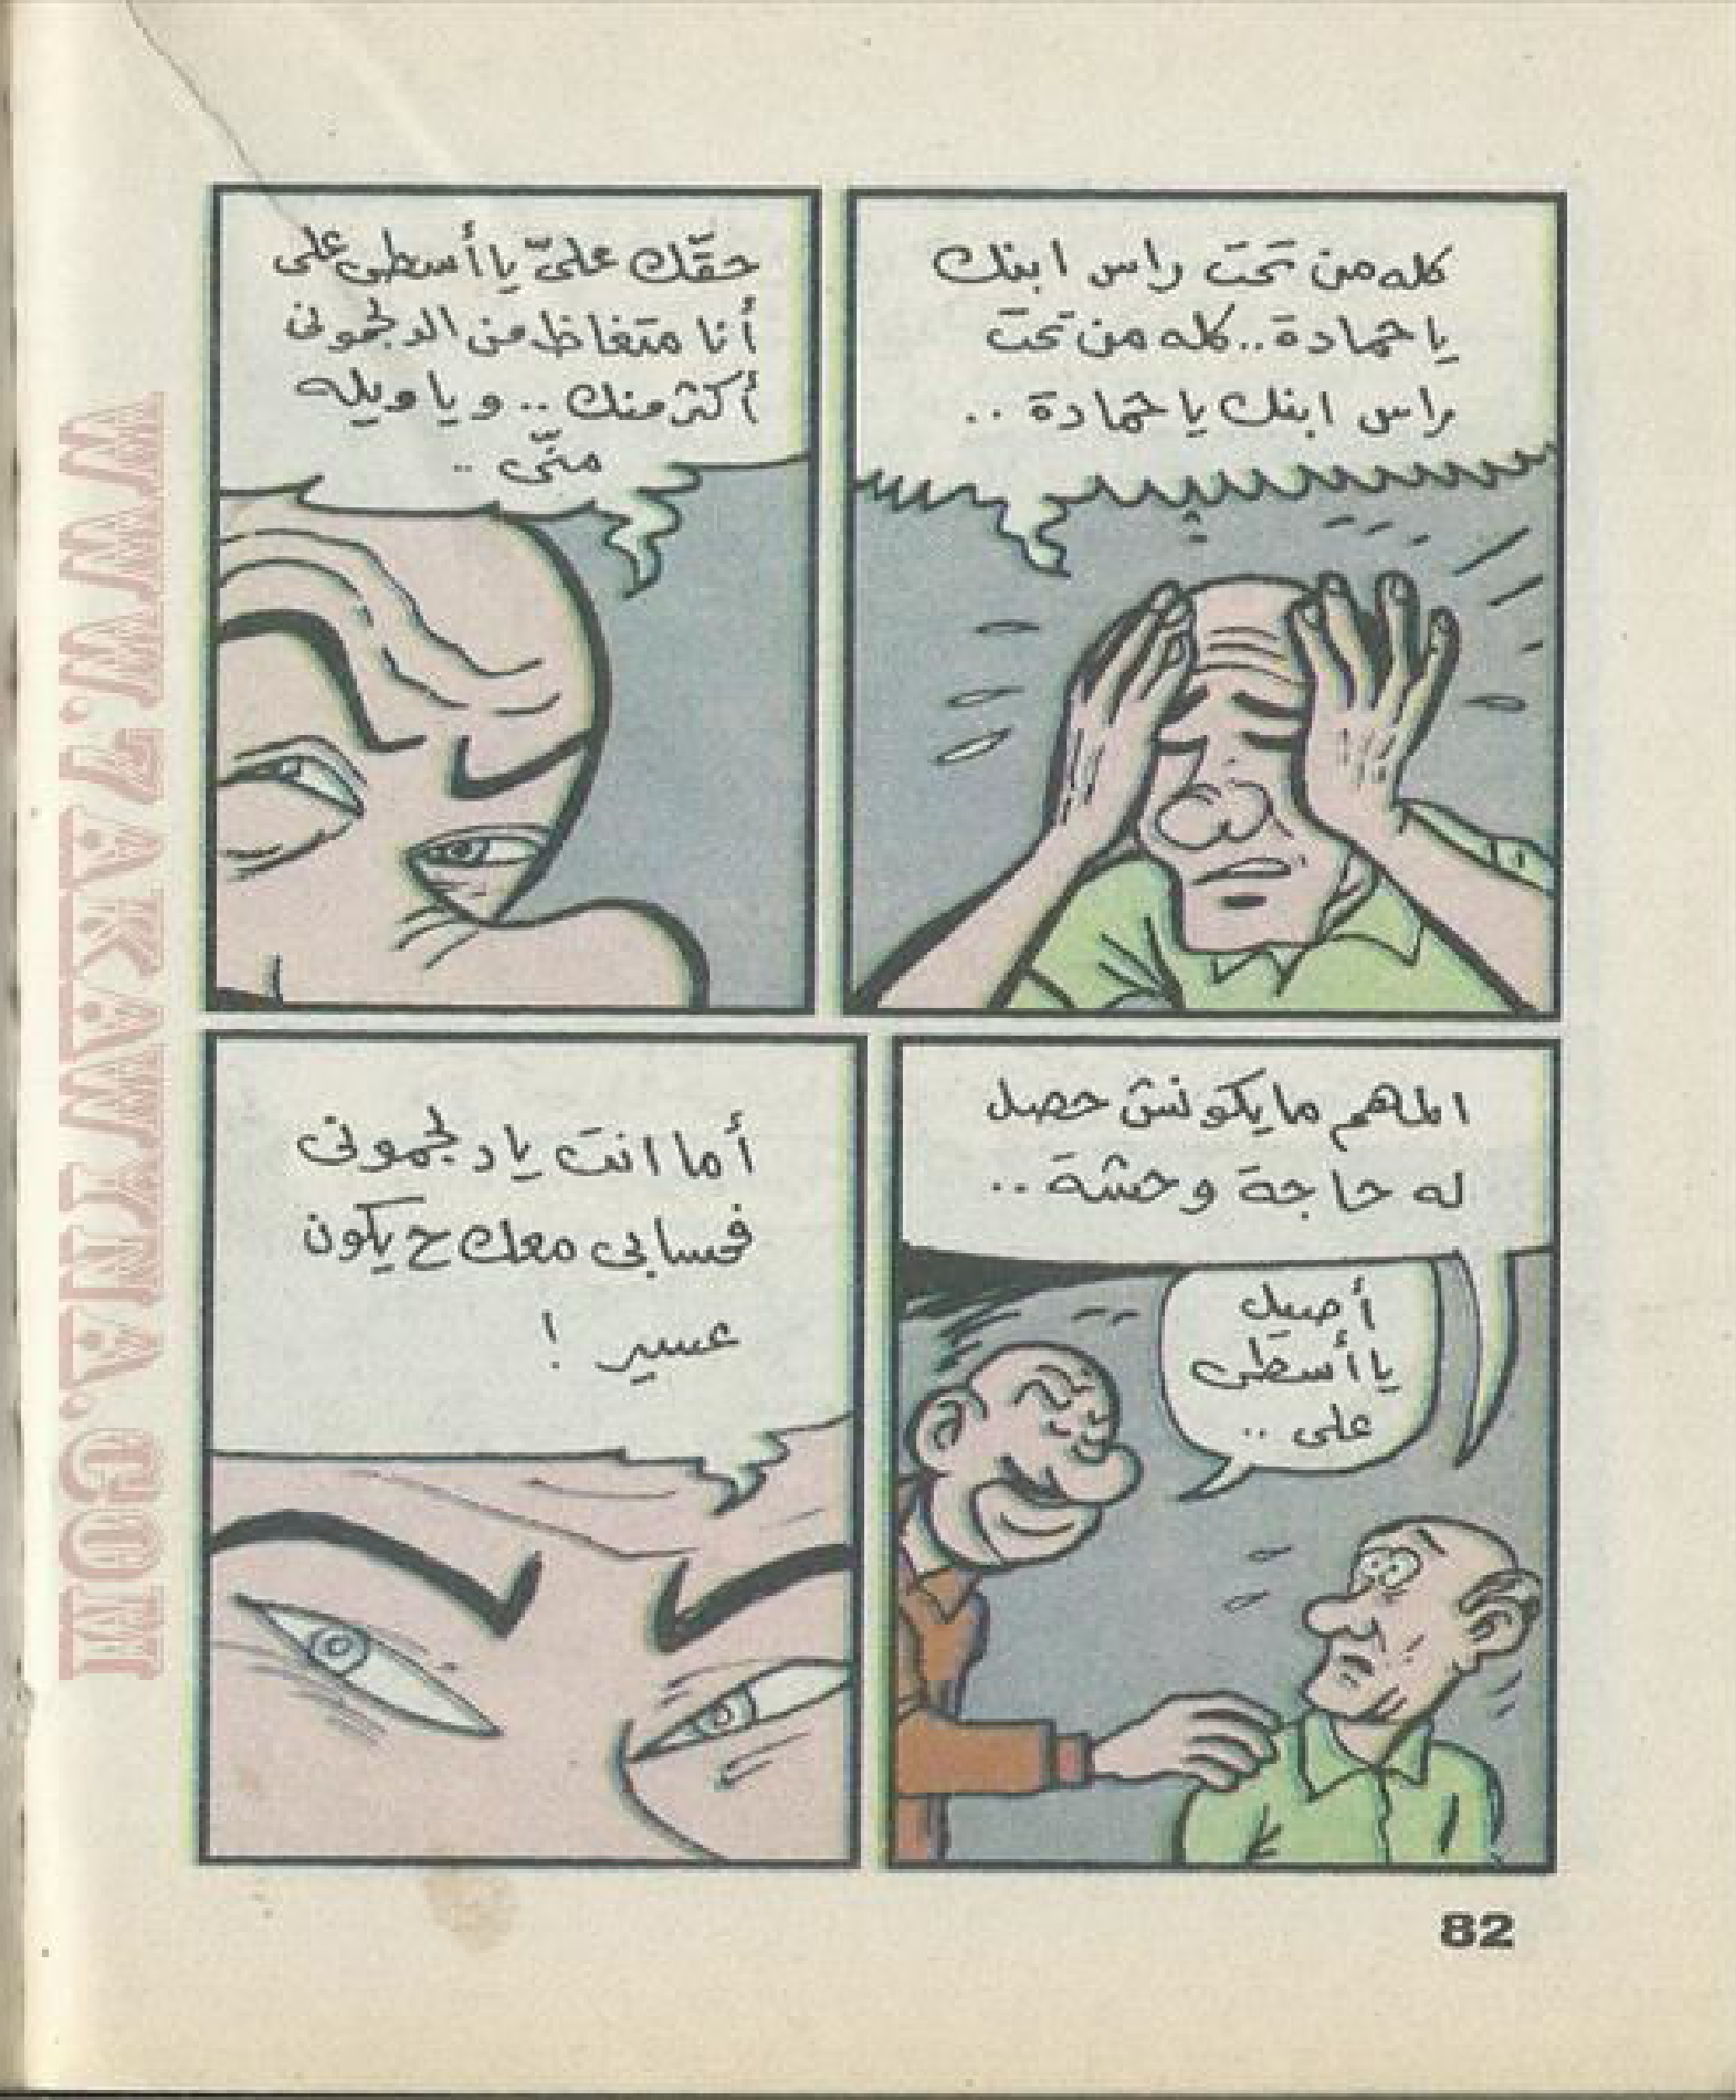 كله من تحت راس ابنك
يا حمادة.. كله من تحت
راس ابنك يا حمادة ..
حقّك علىّ يا أسطى على
أنا متغاظ من الدلجمونى
أكتر منك .. ويا ويله
منّى ..
المهم مايكونش حصل
له حاجة وحشة ..
أصيل
يا أسطى
على ..
أما انت يا دلجمونى
فحسابى معاك ح يكون
عسير !
82
WWW.7AKAWITNA.COM